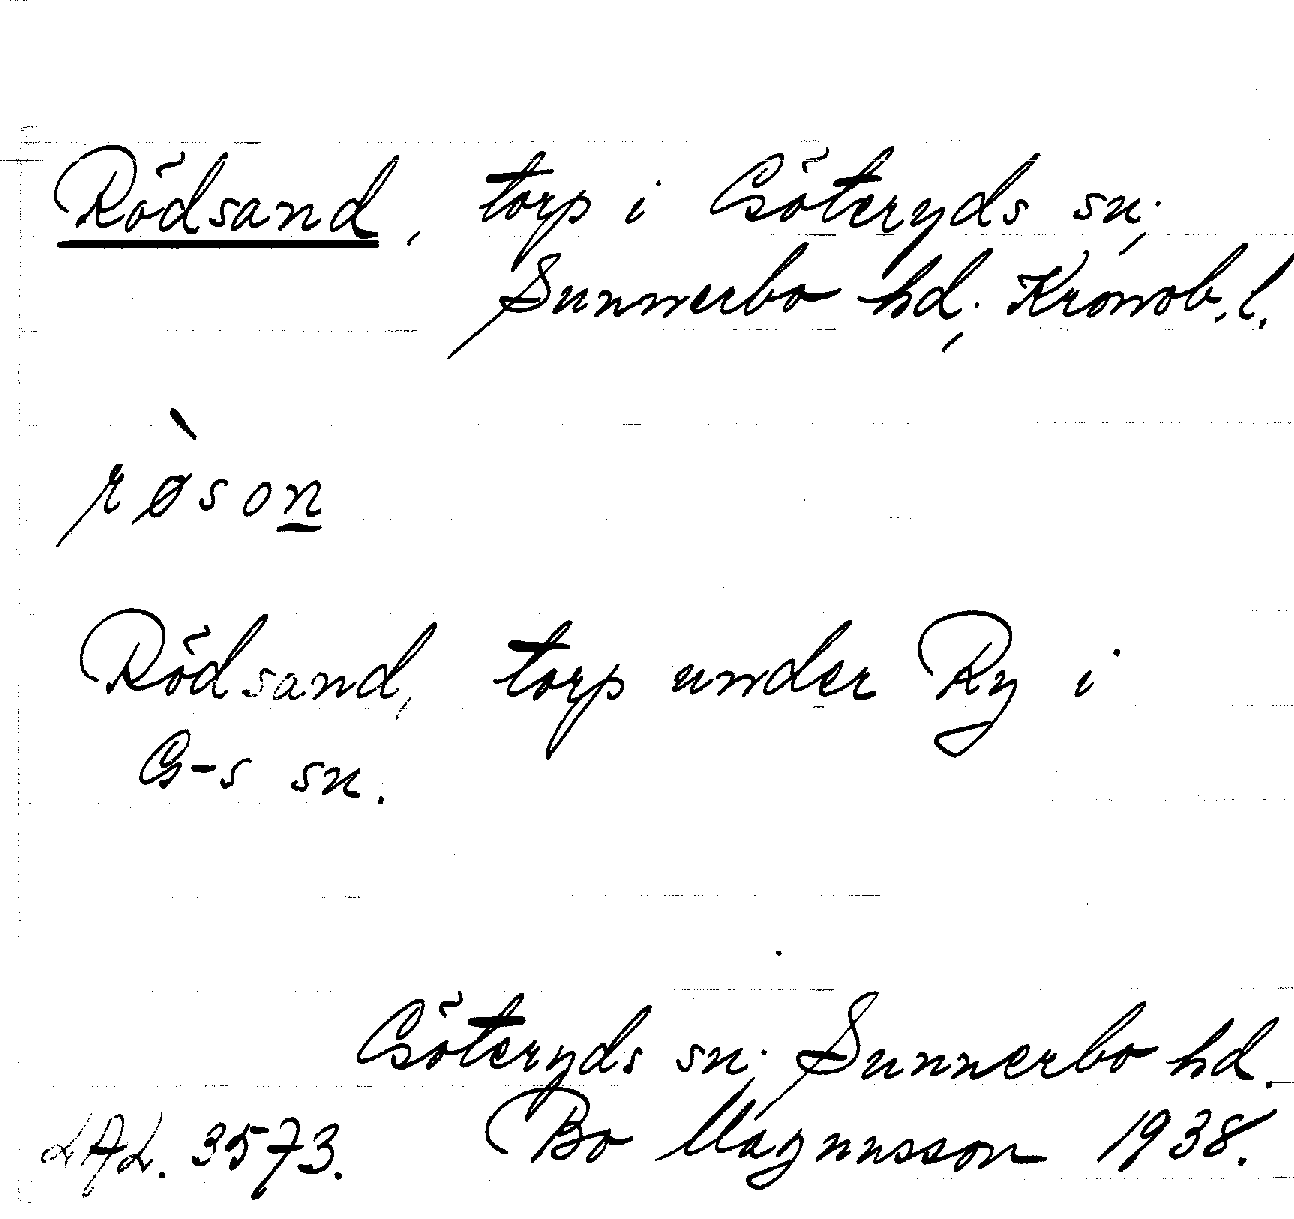 Rödsand, torp i Göteryds sn.,
Sunnerbo hd., Kronob. l.
rø̀son
Rödsand, torp under Ry i
G-s sn.
Göteryds sn., Sunnerbo hd.
LAL. 3573. Bo Magnusson 1938.